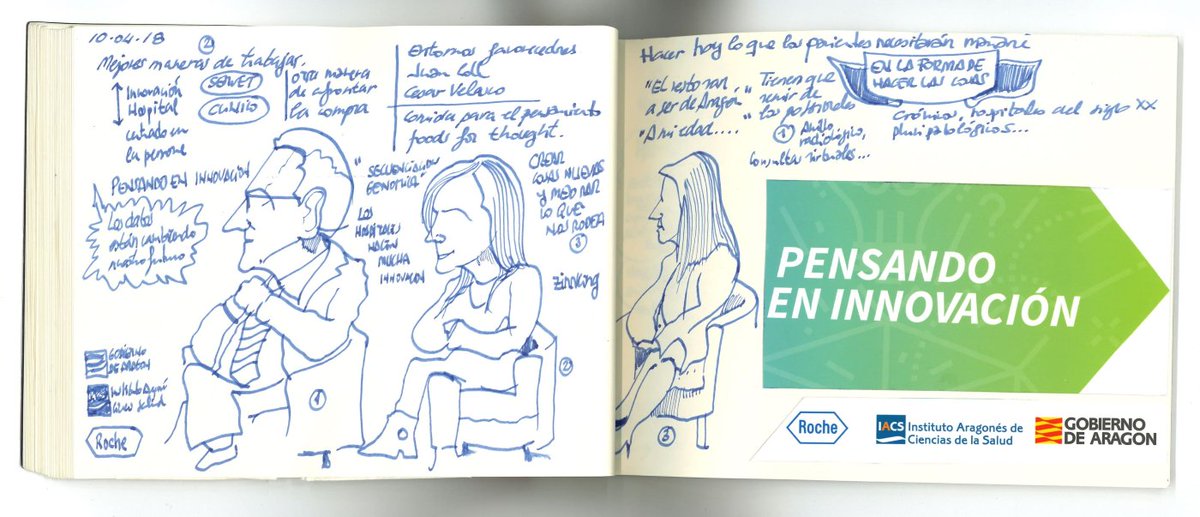 10.04.18
②
Mejores maneras de trabajar.
Innovación
Hospital
centrado en
la persona
SEWET
CUMBIO
otra manera
de afrontar
la compra
Entornos favorecedores
Juan Coll
Cesar Velasco
Comida para el pensamiento
foods for thought.
PENSANDO EN INNOVACIÓN
Los datos
están cambiando
nuestro futuro
"SECUENCIACIÓN
GENÓMICA"
LOS
HOSPITALES
HACEN
MUCHA
INNOVACIÓN
CREAR
COSAS NUEVAS
Y MEJORAR
LO QUE
NOS RODEA
③
zinnking
GOBIERNO
DE ARAGÓN
Roche
①
②
Hacer hoy lo que los pacientes necesitarán mañana
EN LA FORMA DE
HACER LAS COSAS
"El resto van
a ser de Aragón"
"Ansiedad...."
Tienen que
venir de
los
① Anillo
radiológico,
Consultas virtuales...
Crónicos, hospitales del siglo XX
pluripatológicos...
③
PENSANDO
EN INNOVACIÓN
Roche
IACS
Instituto Aragonés de
Ciencias de la Salud
GOBIERNO
DE ARAGON